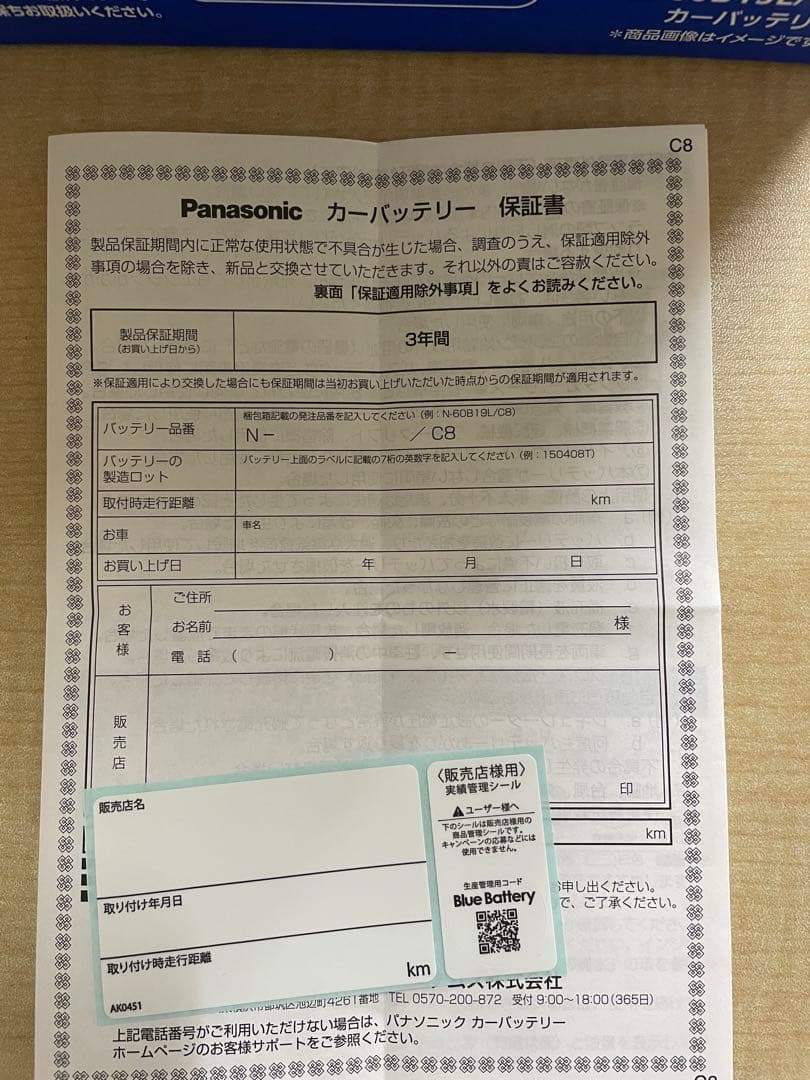 ちお取扱いください。
カーバッテリ
※商品画像はイメージです
C8
Panasonic カーバッテリー 保証書
製品保証期間内に正常な使用状態で不具合が生じた場合、調査のうえ、保証適用除外
事項の場合を除き、新品と交換させていただきます。それ以外の責はご容赦ください。
裏面「保証適用除外事項」をよくお読みください。
製品保証期間
(お買い上げ日から)
3年間
※保証適用により交換した場合にも保証期間は当初お買い上げいただいた時点からの保証期間が適用されます。
バッテリー品番
梱包箱記載の発注品番を記入してください（例：N-60B19L/C8）
N− ／C8
バッテリーの
製造ロット
バッテリー上面のラベルに記載の7桁の英数字を記入してください（例：150408T）
取付時走行距離
km
お車
車名
お買い上げ日
年 月 日
お客様
ご住所
お名前 様
電話 （ ） −
販売店
印
km
販売店名
取り付け年月日
取り付け時走行距離
km
AK0451
〈販売店様用〉
実績管理シール
⚠ユーザー様へ
下のシールは販売店様用の
商品管理シールです。
キャンペーンの応募などには
使用できません。
生産管理用コード
Blue Battery
お申し出ください。
で、ご了承ください。
ムズ株式会社
市都筑区池辺町4261番地 TEL 0570-200-872 受付 9:00〜18:00（365日）
上記電話番号がご利用いただけない場合は、パナソニック カーバッテリー
ホームページのお客様サポートをご参照ください。